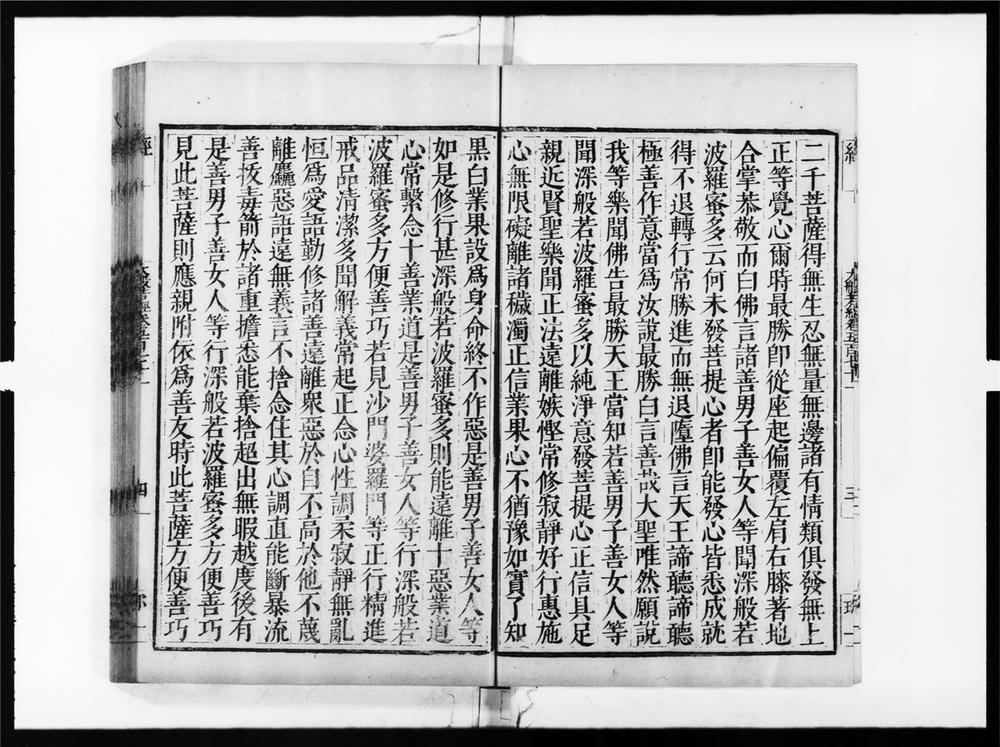 二千菩薩得無生忍無量無邊諸有情類俱發無上
正等覺心爾時最勝卽從座起偏覆左肩右膝著地
合掌恭敬而白佛言諸善男子善女人等聞深般若
波羅蜜多云何未發菩提心者卽能發心皆悉成就
得不退轉行常勝進而無退墮佛言天王諦聽諦聽
極善作意當爲汝說最勝白言善哉大聖唯然願說
我等樂聞佛告最勝天王當知若善男子善女人等
聞深般若波羅蜜多以純淨意發菩提心正信具足
親近賢聖樂聞正法遠離嫉慳常修寂靜好行惠施
心無限礙離諸穢濁正信業果心不猶豫如實了知
黑白業果設爲身命終不作惡是善男子善女人等
如是修行甚深般若波羅蜜多則能遠離十惡業道
心常繫念十善業道是善男子善女人等行深般若
波羅蜜多方便善巧若見沙門婆羅門等正行精進
戒品清潔多聞解義常起正念心性調柔寂靜無亂
恒爲愛語勤修諸善遠離衆惡於自不高於他不蔑
離麤惡語遠無義言不捨念住其心調直能斷暴流
善拔毒箭於諸重擔悉能棄捨超出無暇越度後有
是善男子善女人等行深般若波羅蜜多方便善巧
見此菩薩則應親附依爲善友時此菩薩方便善巧
經
四